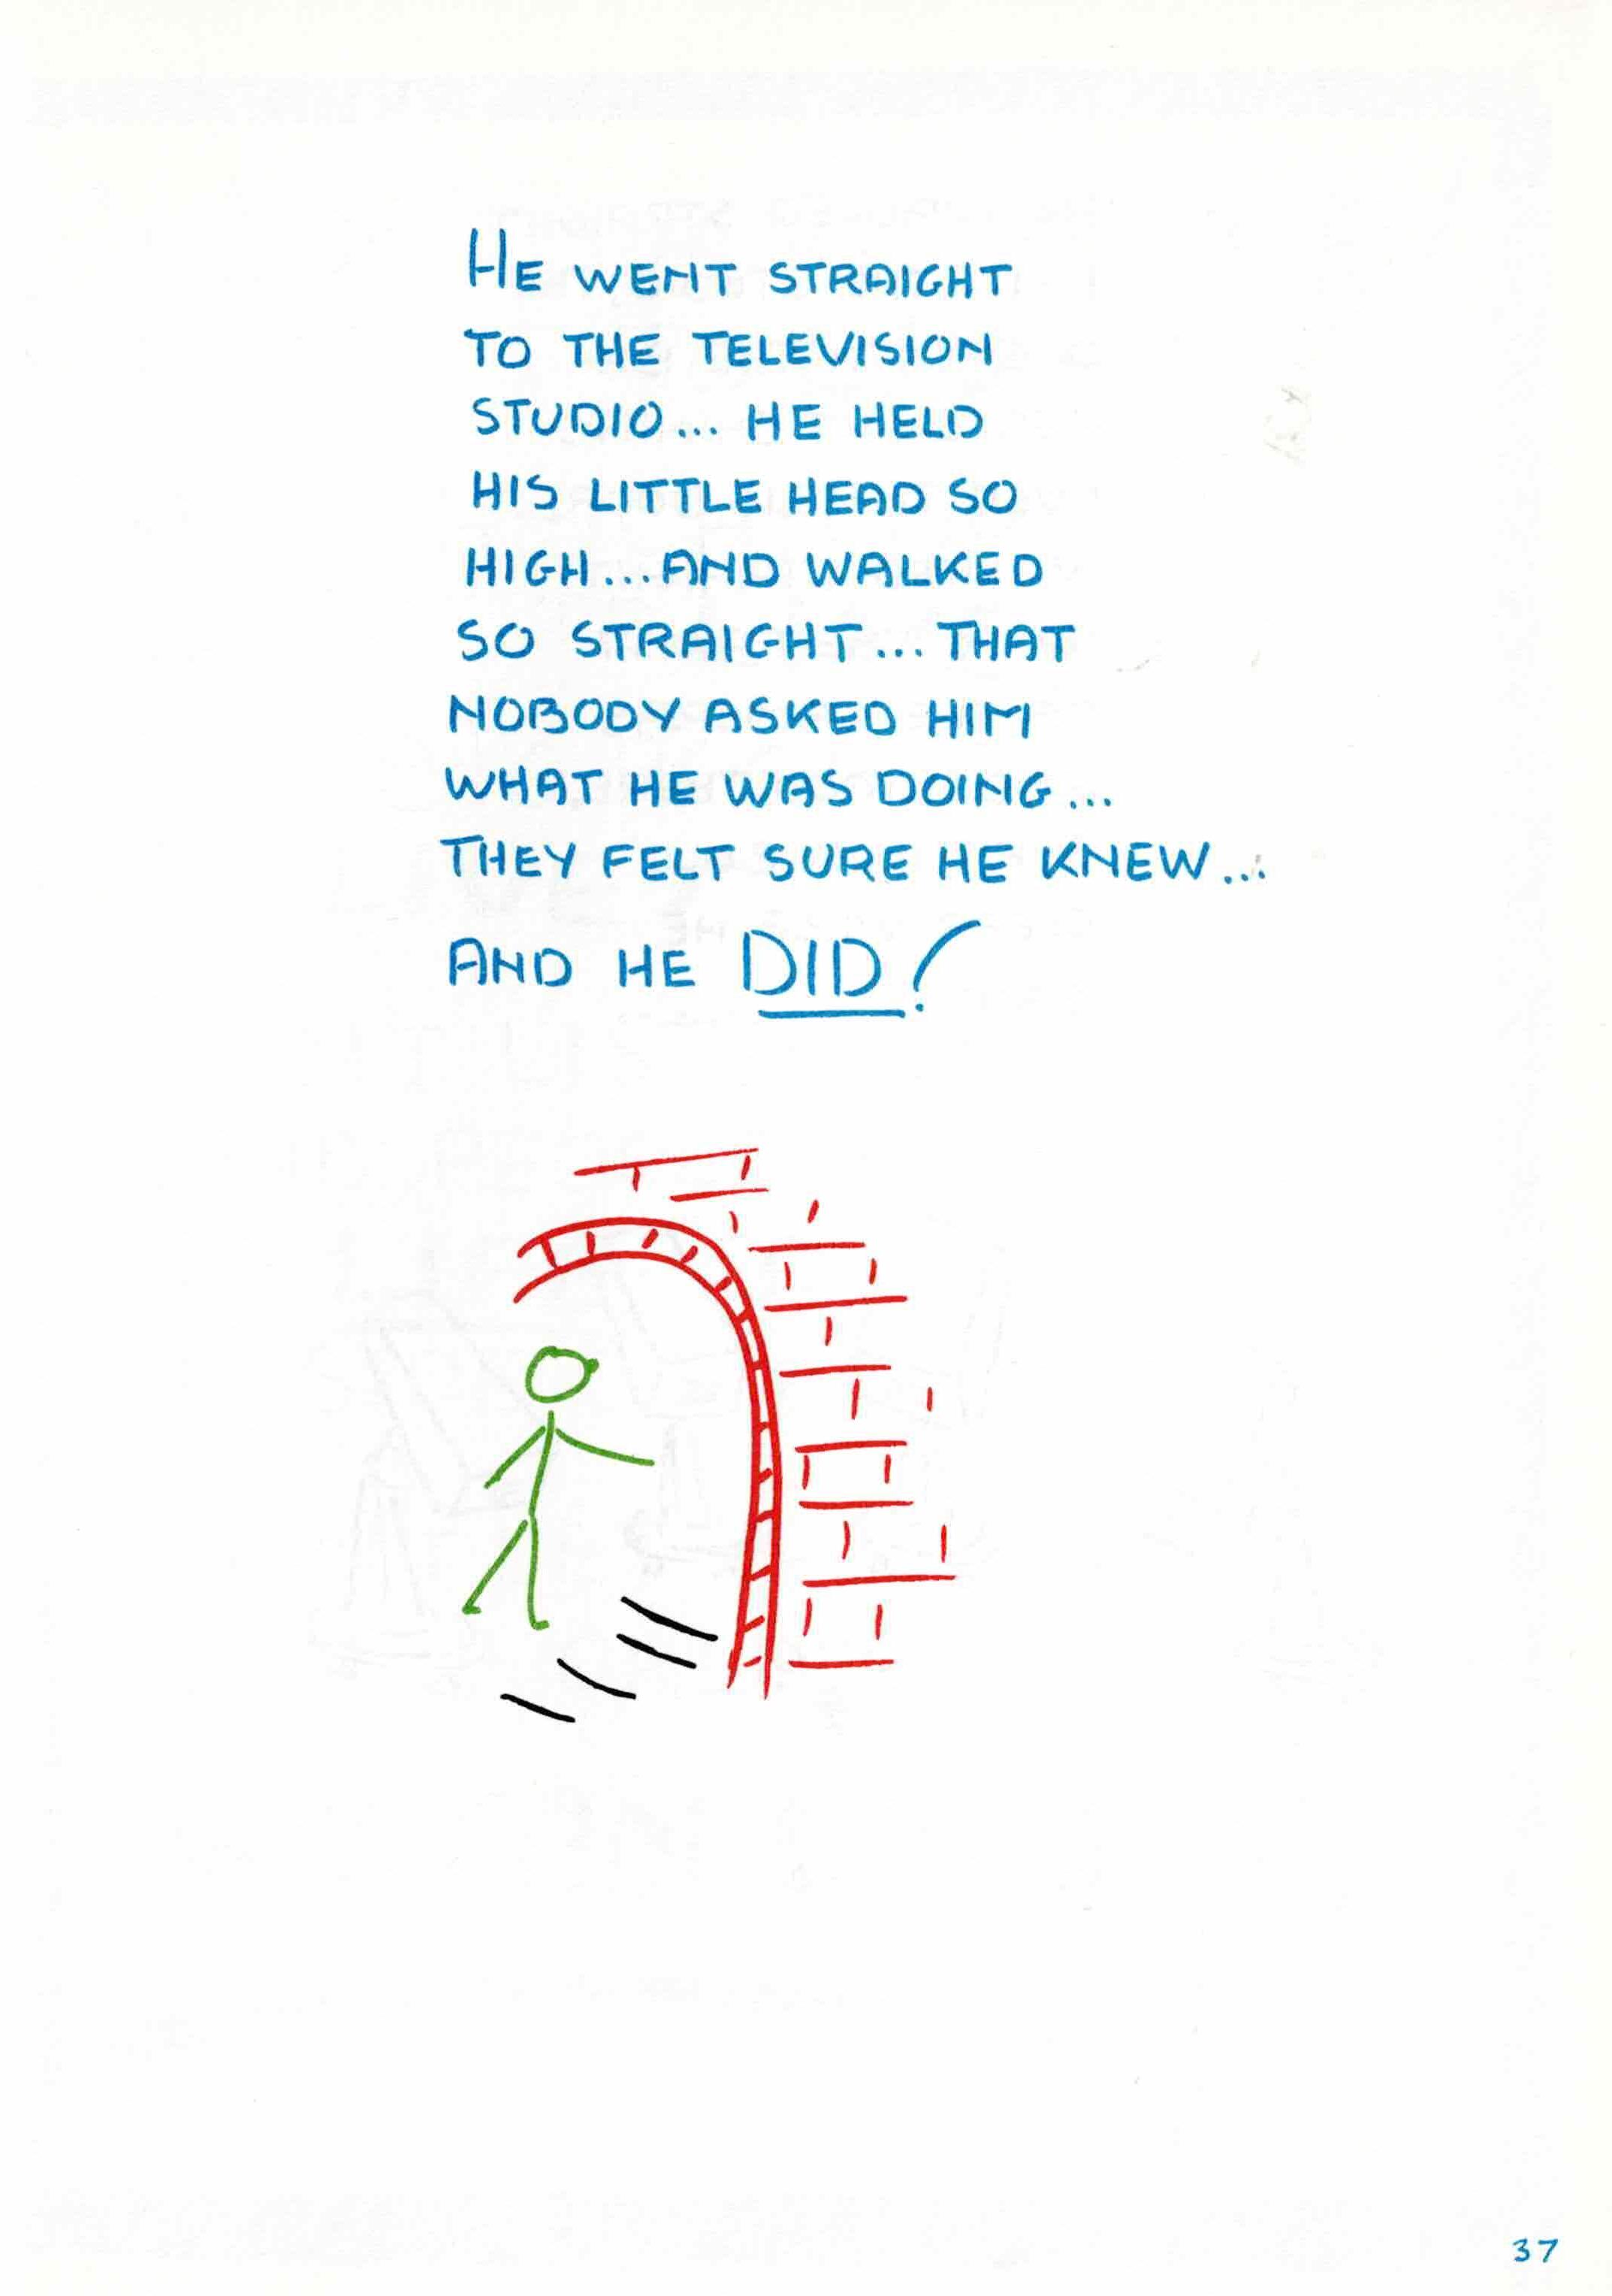 HE WENT STRAIGHT
TO THE TELEVISION
STUDIO... HE HELD
HIS LITTLE HEAD SO
HIGH...AND WALKED
SO STRAIGHT...THAT
NOBODY ASKED HIM
WHAT HE WAS DOING...
THEY FELT SURE HE KNEW...
AND HE DID!
37